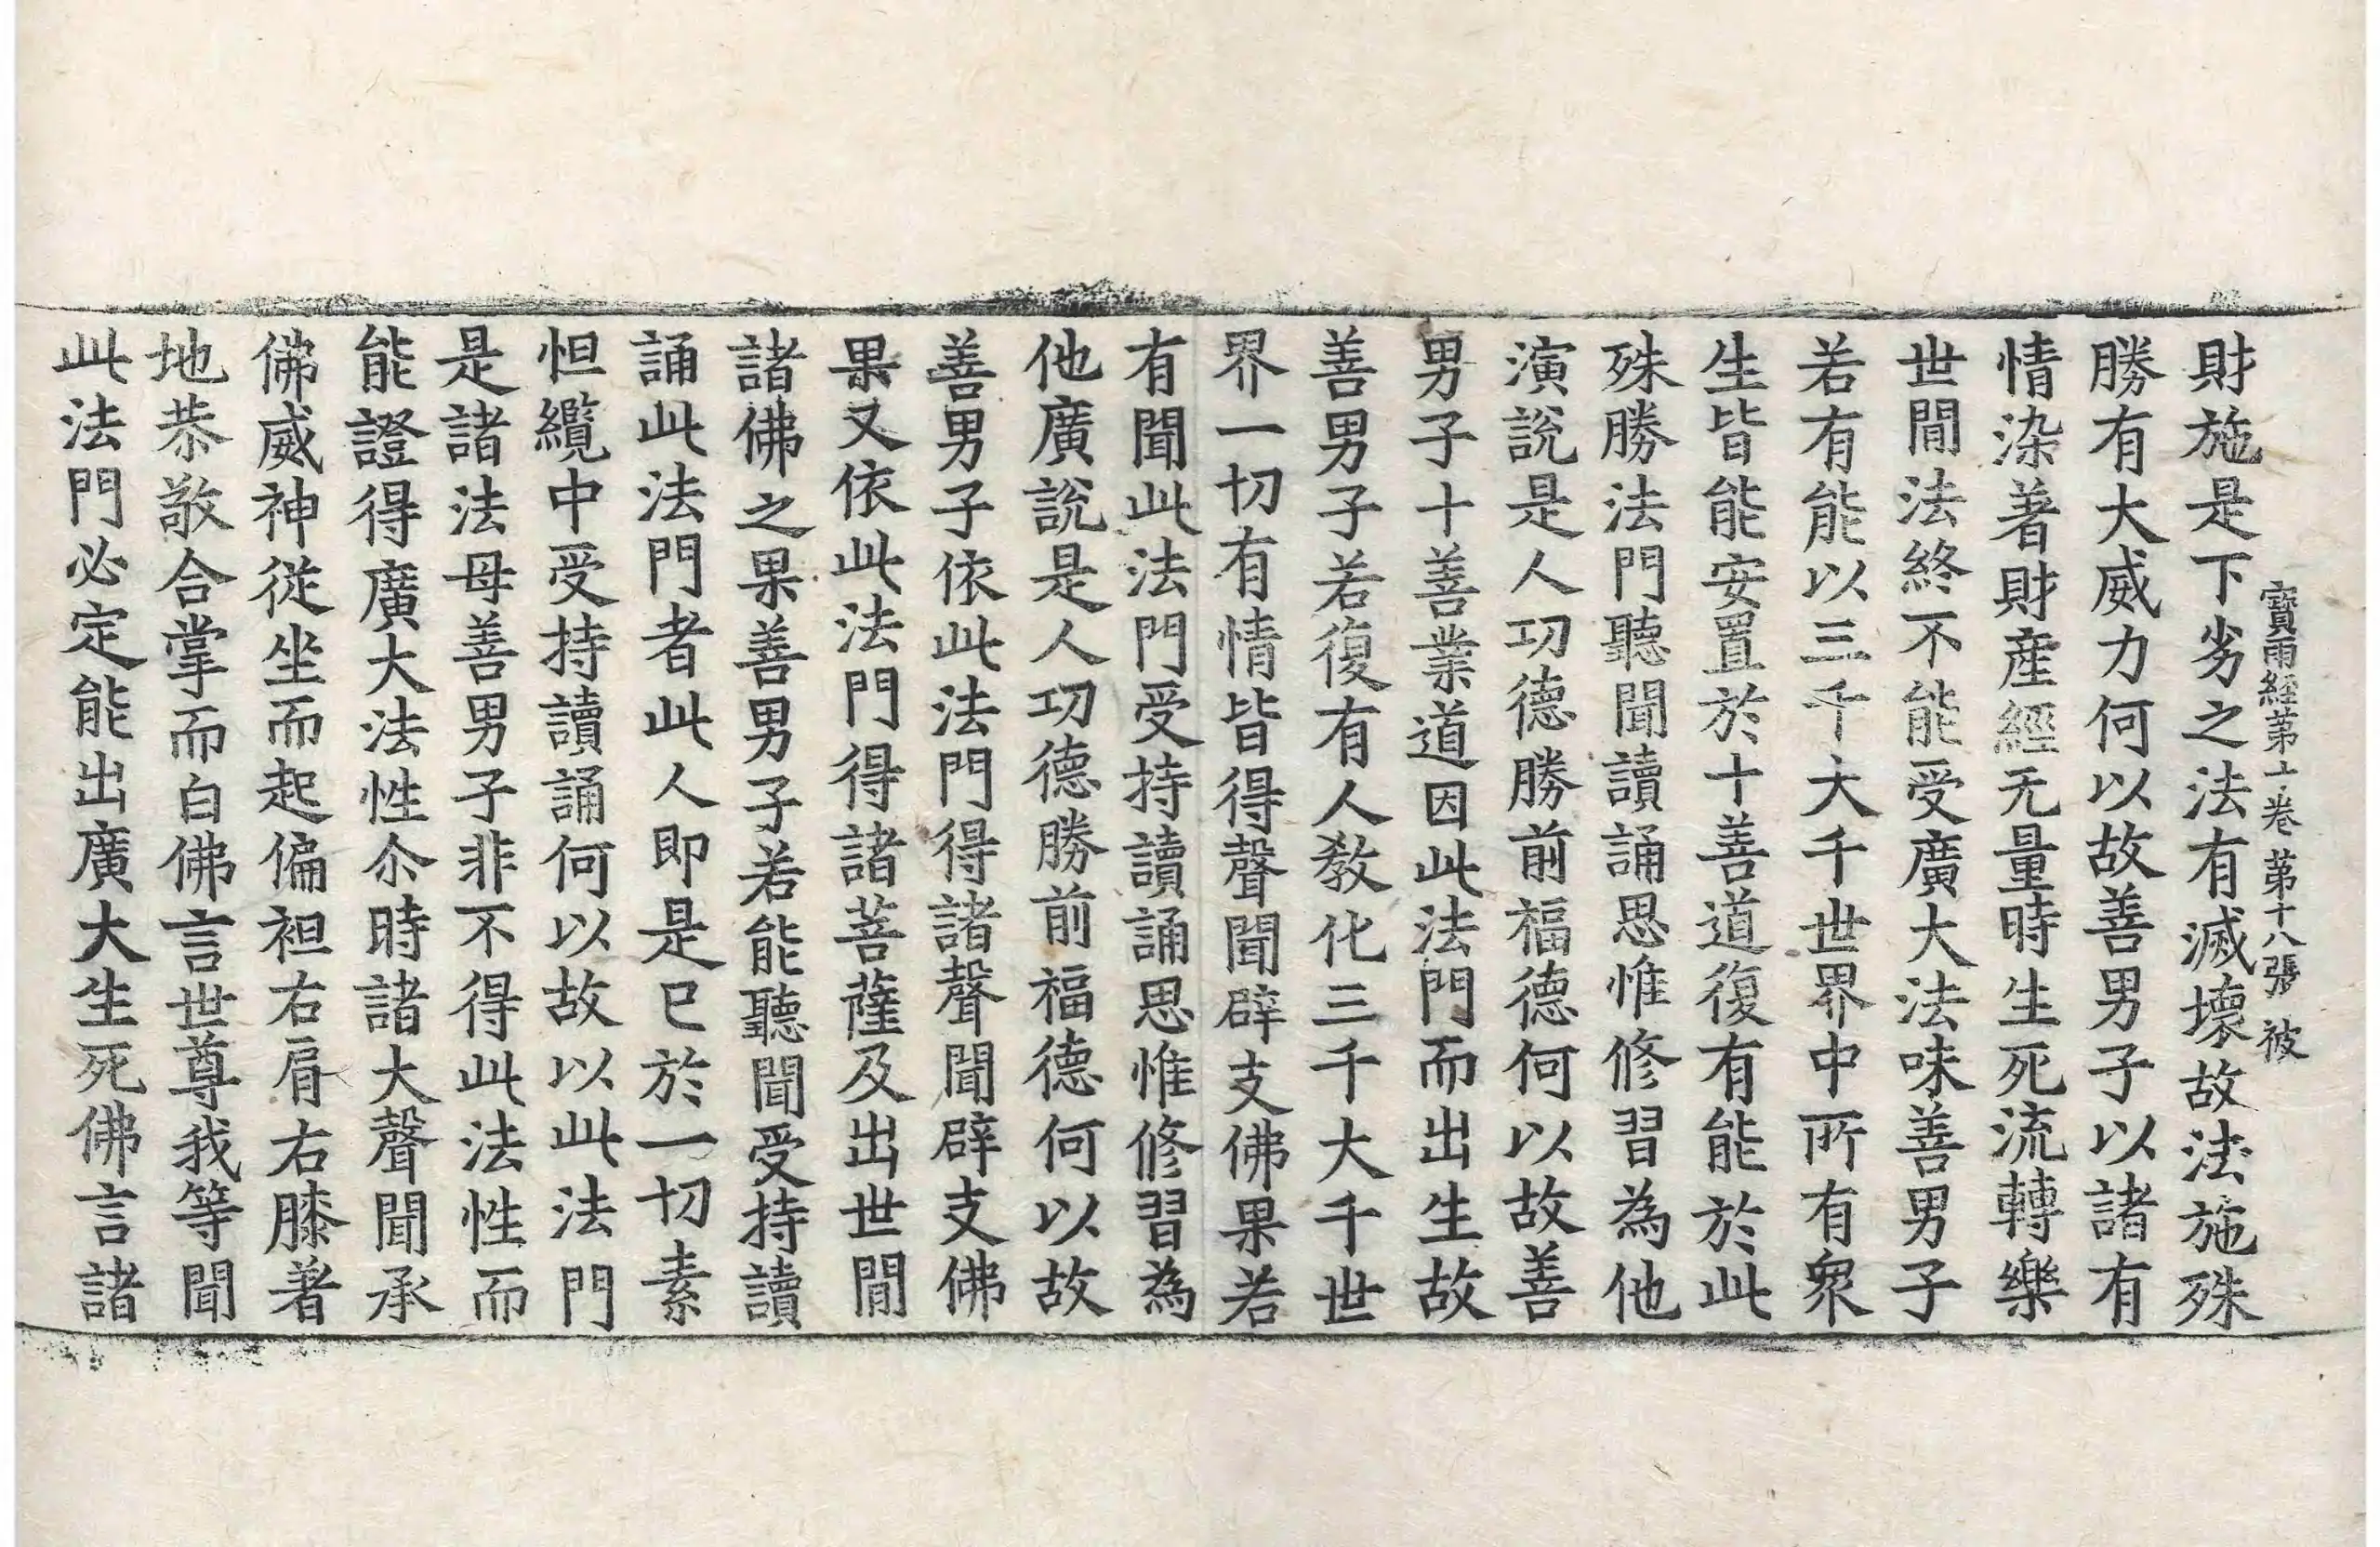 寶雨經第十卷 第十八張 被
財施是下劣之法有滅壞故法施殊
勝有大威力何以故善男子以諸有
情染著財產經无量時生死流轉樂
世間法終不能受廣大法味善男子
若有能以三千大千世界中所有衆
生皆能安置於十善道復有能於此
殊勝法門聽聞讀誦思惟修習為他
演說是人功德勝前福德何以故善
男子十善業道因此法門而出生故
善男子若復有人教化三千大千世
界一切有情皆得聲聞辟支佛果若
有聞此法門受持讀誦思惟修習為
他廣說是人功德勝前福德何以故
善男子依此法門得諸聲聞辟支佛
果又依此法門得諸菩薩及出世間
諸佛之果善男子若能聽聞受持讀
誦此法門者此人即是已於一切素
怛纜中受持讀誦何以故以此法門
是諸法母善男子非不得此法性而
能證得廣大法性尒時諸大聲聞承
佛威神從坐而起偏袒右肩右膝著
地恭敬合掌而白佛言世尊我等聞
此法門必定能出廣大生死佛言諸